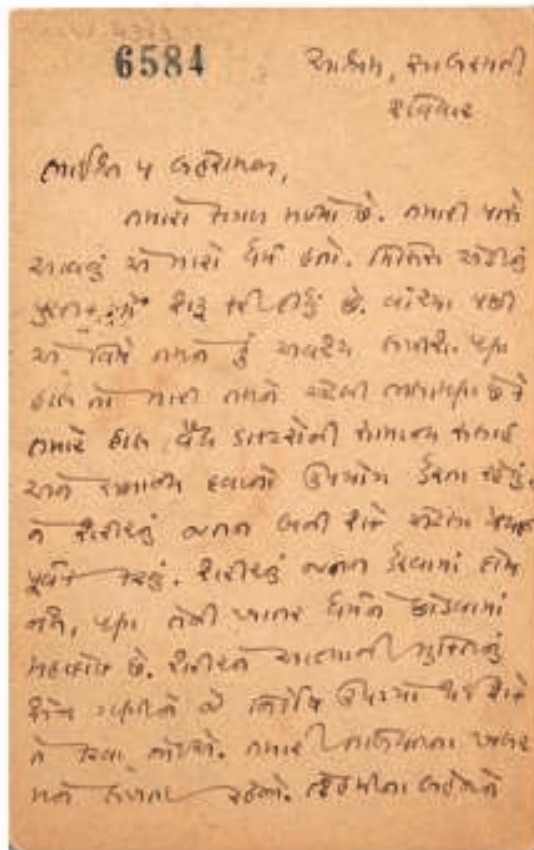 6584
આશ્રમ, સાબરમતી
રવિવાર
ભાઈશ્રી
તમારો કાગળ મળ્યો છે. તમારી પાસે
આવવું એ મારો ધર્મ હતો.
શરૂ કરી દીધું છે. વાંચ્યા પછી
એ વિષે તમને હું અવશ્ય લખીશ. પણ
હાલ તો મારી તમને એટલી ભલામણ છે કે
તમારે હાલ વૈદ્ય ડાક્ટરોની સામાન્ય સલાહ
અને સામાન્ય દવાનો ઉપયોગ કરતા રહેવું.
ને શરીરનું જતન બની શકે એટલા
પૂર્વક કરવું. શરીરનું જતન કરવામાં દોષ
નથી, પણ તેની ખાતર ધર્મને છોડવામાં
મહાદોષ છે. શરીરને આત્માની મુક્તિનું
ક્ષેત્ર ગણીને જે નિર્દોષ ઉપચારો થઈ શકે
તે કરવા જોઈએ. તમારી તબિયતના ખબર
મને લખતા રહેજો.